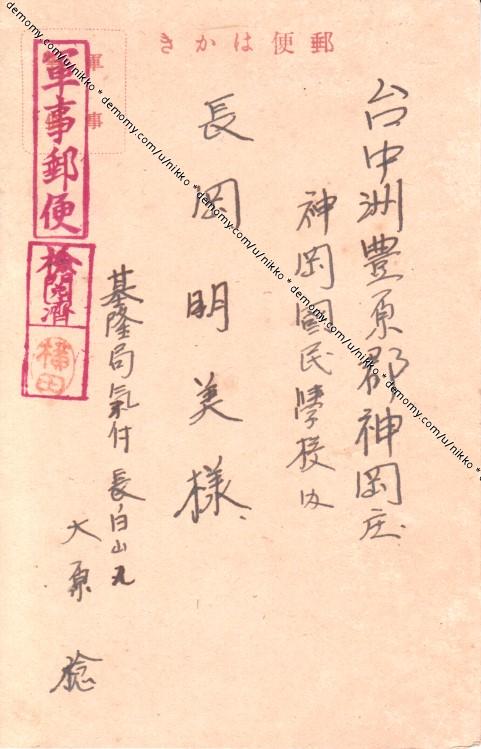 郵便はかき
軍事
台中洲豊原郡神岡庄
神岡國民學校内
長岡明美様
基隆局気付 長白山丸
大原 稔
軍事郵便
検閲済
demomy.com/u/nikko * demomy.com/u/nikko * demomy.com/u/nikko * demomy.com/u/nikko * demomy.com/u/nikko * demomy.com/u/nikko